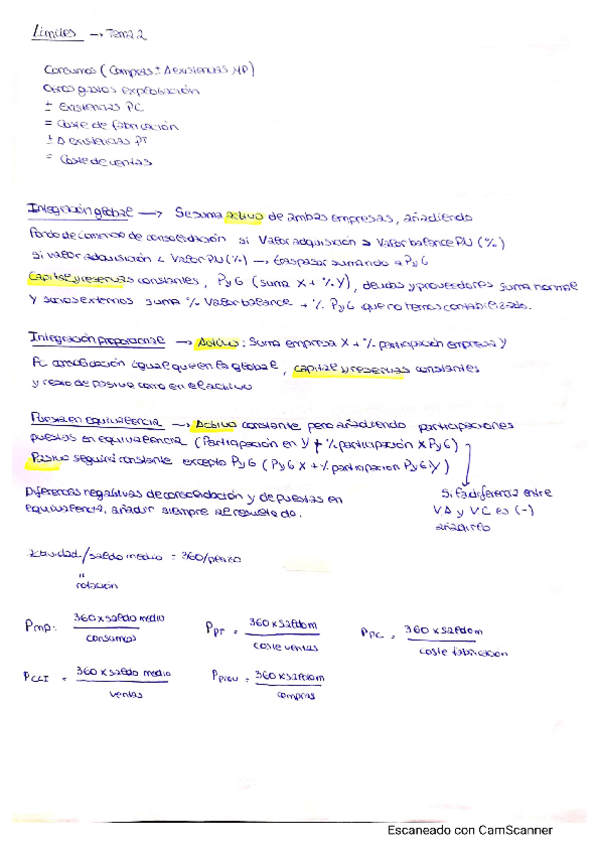 Límites → Tema 2
Consumos (Compras ± Δ existencias MP)
Otros gastos explotación
± Existencias PC
= Coste de fabricación
± Δ existencias PT
= Coste de ventas
Integración global → Se suma activo de ambas empresas, añadiendo
fondo de comercio de consolidación si Valor adquisición > Valor balance PU (%)
si valor adquisición < Valor PU (%) → traspasar sumando a PyG
Capital y reservas constantes, PyG (suma X + % Y), deudas y proveedores suma normal
y socios externos suma % Valor balance + % PyG que no hemos contabilizado.
Integración proporcional → Activo: Suma empresa X + % participación empresa Y
FC consolidación igual que en la global, capital y reservas constantes
y resto de pasivo como en el activo
Puesta en equivalencia → Activo constante pero añadiendo participaciones
puestas en equivalencia (Participación en Y + % participación X PyG)
Pasivo seguirá constante excepto PyG (PyG X + % participación PyG Y)
Diferencias negativas de consolidación y de puestas en
equivalencia, añadir siempre al resultado.
Si la diferencia entre
VA y VC es (-)
añadirlo
/saldo medio = 360/
"
rotación
PMP: 360 x saldo medio / consumos
PPT = 360 x saldo m / coste ventas
PPC = 360 x saldo m / coste fabricación
PCLI = 360 x saldo medio / ventas
PProv = 360 x saldo m / compras
Escaneado con CamScanner